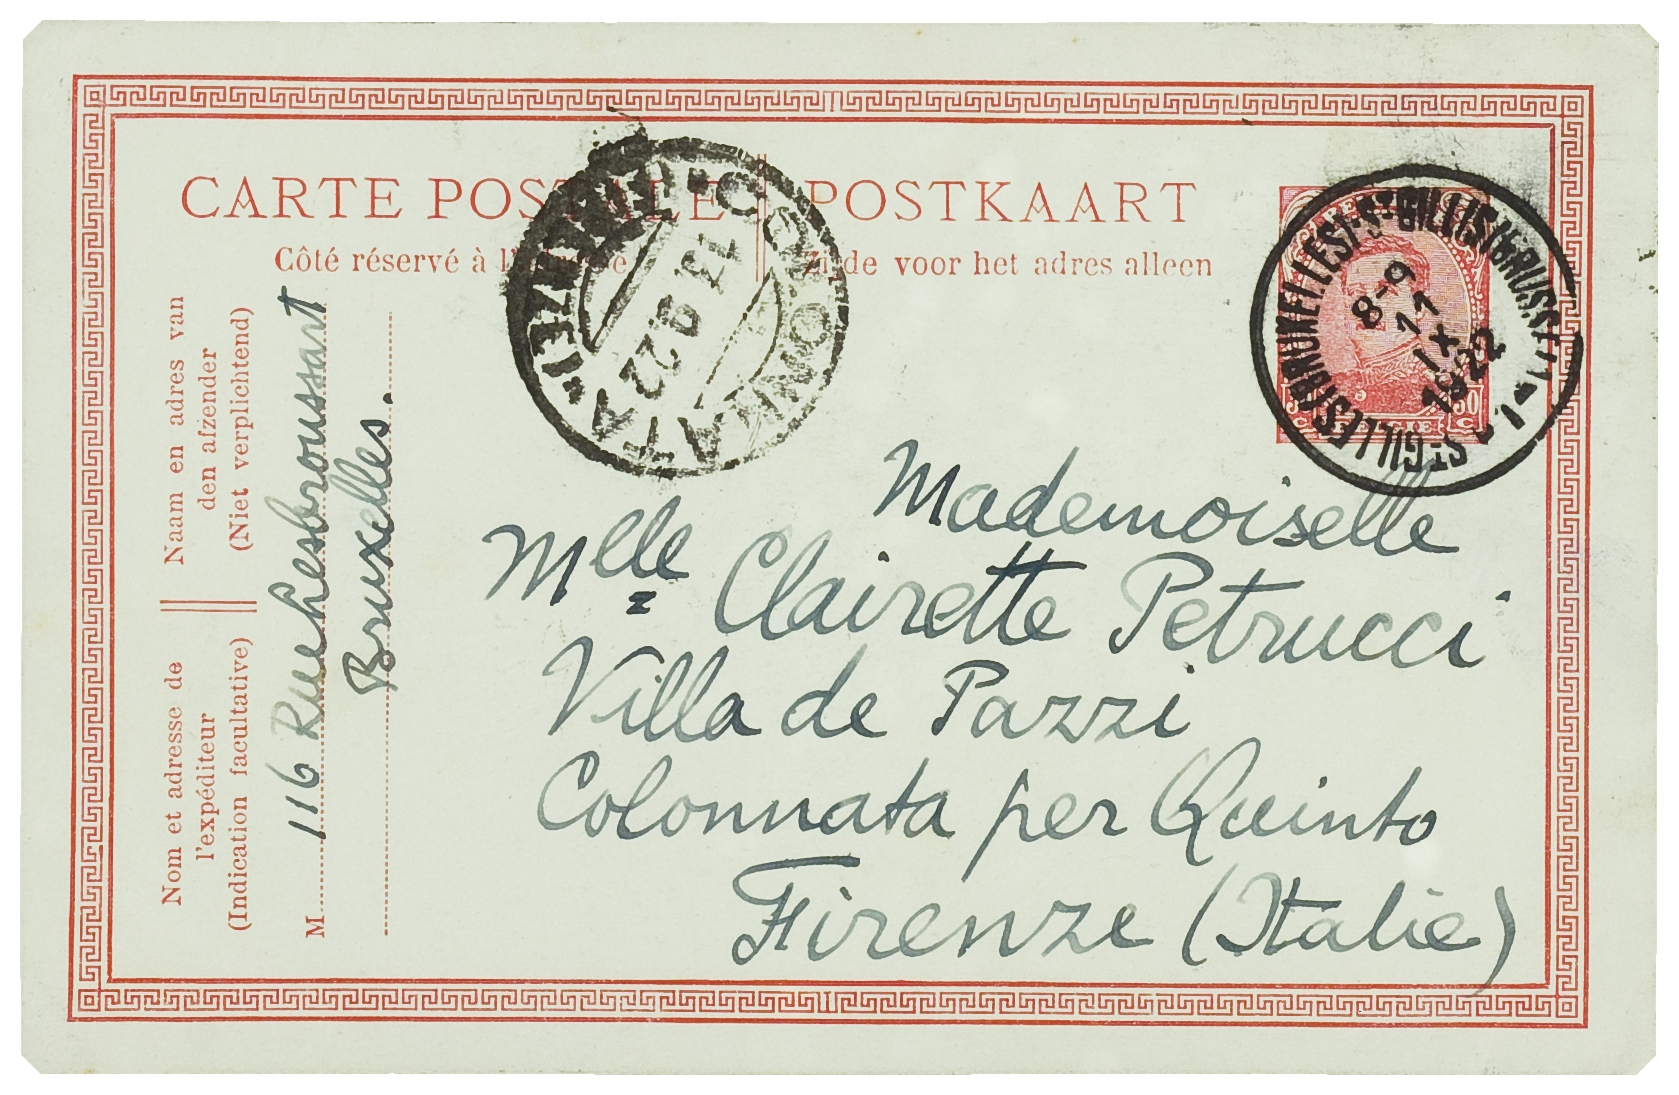 CARTE POSTALE
POSTKAART
Côté réservé à
Zijde voor het adres alleen
COLONNATA (FIRENZE)
13.9.22
ST GILLES (BRUXELLES) ST GILLIS (BRUSSEL) 1
8-9
11
IX
1922
BELGIE
30
C
Naam en adres van
den afzender
(Niet verplichtend)
Nom et adresse de
l'expéditeur
(Indication facultative)
M
116 Rue Lesbroussart
Bruxelles.
Mademoiselle
Mlle Clairette Petrucci
Villa de Pazzi
Colonnata per Quinto
Firenze (Italie)